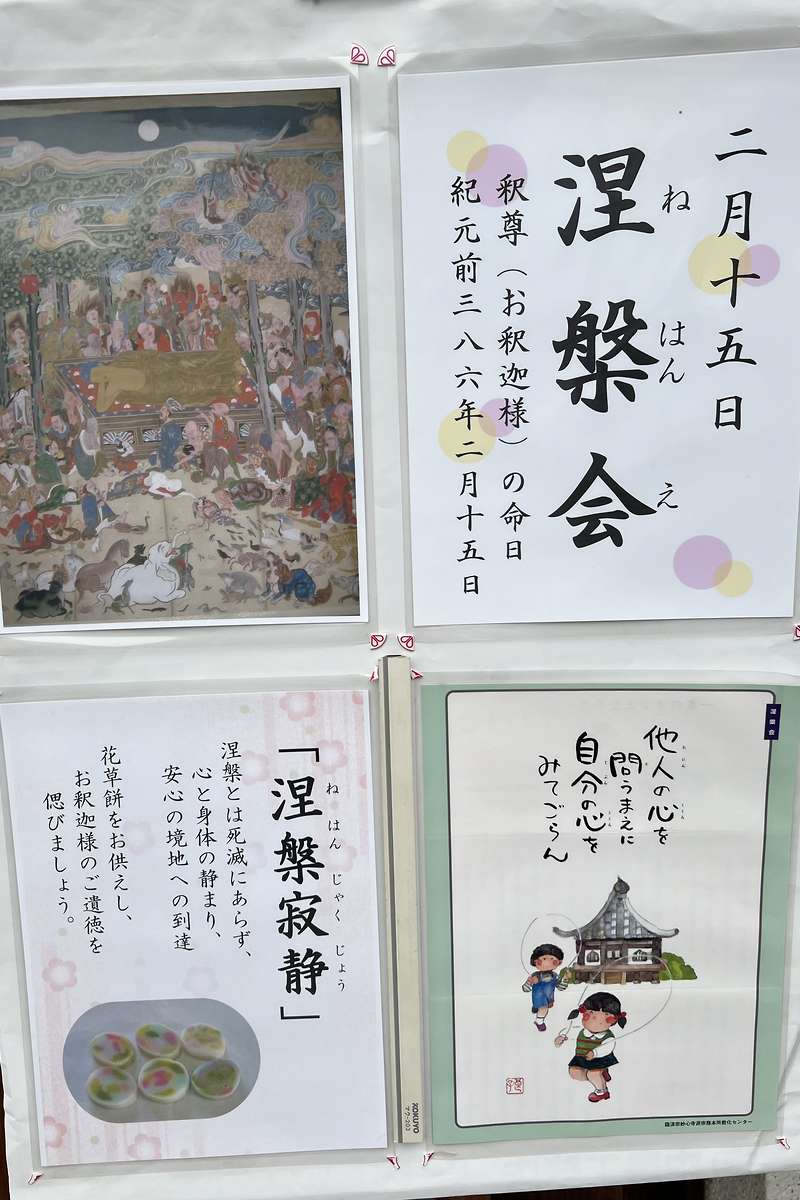 二月十五日
涅槃会
ね はん え
釈尊（お釈迦様）の命日
紀元前三八六年二月十五日
「涅槃寂静」
ね はん じゃく じょう
涅槃とは死滅にあらず、
心と身体の静まり、
安心の境地への到達
花草餅をお供えし、
お釈迦様のご遺徳を
偲びましょう。
涅槃会
他人の心を
問うまえに
自分の心を
みてごらん
臨済宗妙心寺派宗務本所教化センター
KOKUYO
マク-203